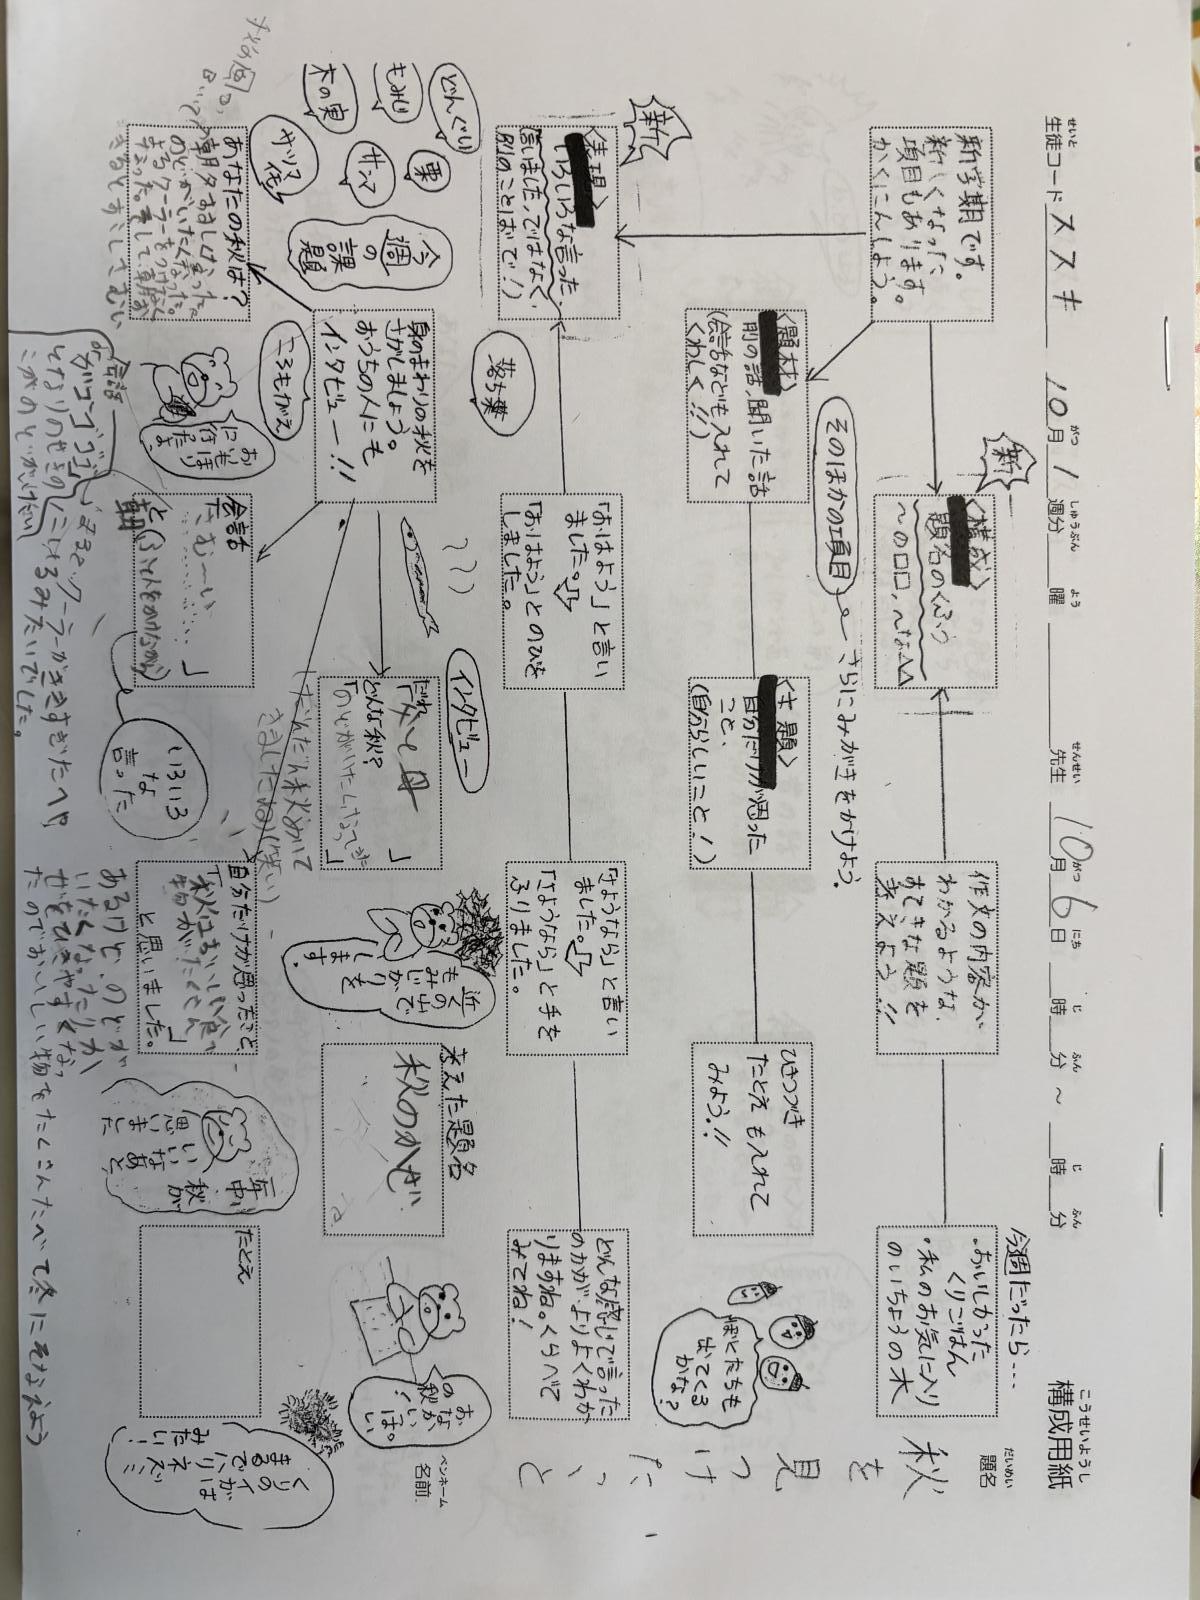 構成用紙
こうせいようし
生徒コード ススキ 10月 1 週分 曜 先生 10月 6日 時 分 ~ 時 分
せいと がつ しゅうぶん よう せんせい がつ にち じ ふん じ ふん
題名
だいめい
秋を見つけたこと
ペンネーム
名前
新学期です。
新しくなった
項目もあります。
かくにんしよう。
新
<構成>
題名のくふう
~の口口、~な△△
作文の内容が
わかるような、
すてきな題を
考えよう!!
今週だったら…
・おいしかった
くりごはん
・私のお気に入り
のいちょうの木
そのほかの項目
さらにみがきをかけよう。
<題材>
前の話、聞いた話
(会話なども入れて
くわしく!!)
<主題>
自分だけが思った
こと、
(自分らしいこと!)
ひきつづき
たとえも入れて
みよう!!
ぼくたちも
出てくる
かな?
新
<表現>
いろいろな言った、
「言いました」ではなく、
別のことばで!)
「おはよう」と言い
ました。
「おはよう」とのびを
しました。
「さようなら」と言い
ました。
「さようなら」と手を
ふりました。
どんな感じで言った
のかが、よりよくわか
りますね。くらべて
みてね!
どんぐり
もみじ
木の実
栗
サンマ
サツマイモ
落ち葉
ころもがえ
今週の課題
身のまわりの秋を
さがしましょう。
おうちの人にも
インタビュー!!
インタビュー
だれ 父と母
どんな秋?
「のどがいたくなってきた」
だんだん秋めいて
きましたね(笑い)
近くの山で
もみじがりを
します。
考えた題名
秋のかぜ
おなかが
いっぱい
の秋。
あなたの秋は?
朝夕すずしくなった
のどがいたくなった。
おいも
ほけたよ
会話
「さむーい
……」
と(ふとんをかけながら)
朝
いろいろ
な
言った
自分だけが思ったこと
「秋はおいしい食べ
物がたくさん
」
と思いました。
あるけど、のどが
いたくなったりか
ぜをひきやすくなっ
たのでおいしい物をたくさんたべて冬にそなえよう
毎日が秋が
いいなあと
思いました
たとえ
くりのイガは
まるでハリネズミ
みたい!
会話
がゴゴゴゴ
となりのせきの
クーラーがききすぎたへや
こおりのといけけだい
こけるみたいでした。